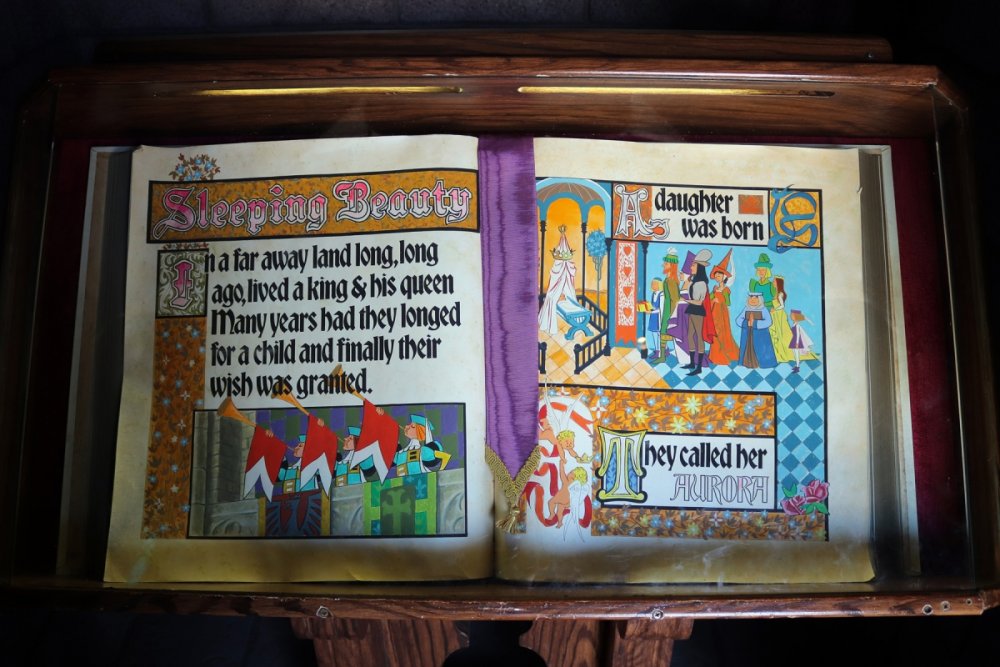 Sleeping Beauty
In a far away land long, long
ago, lived a king & his queen
Many years had they longed
for a child and finally their
wish was granted.
A daughter
was born
They called her
AURORA